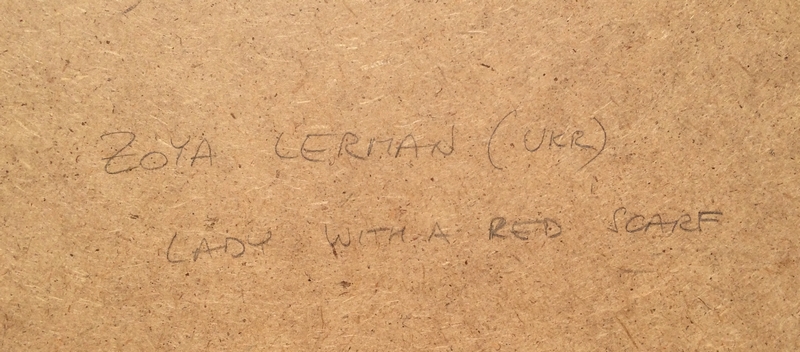 ZOYA LERMAN (UKR)
LADY WITH A RED SCARF